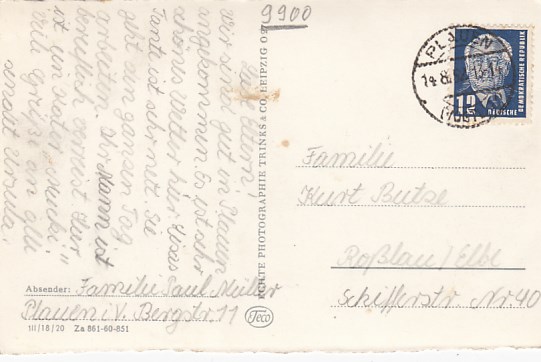 9900
PLAUEN
12
DEUTSCHE
DEMOKRATISCHE REPUBLIK
Familie
Kurt Butze
Roßlau/Elbe
Schifferstr. Nr. 40
ECHTE PHOTOGRAPHIE TRINKS & CO. LEIPZIG
Teco
wir sind gut in Plauen
angekommen. Es ist sehr
schönes Wetter hier.
Tante ist sehr nett. Sie
geht den ganzen Tag
arbeiten. Ihr Mann ist
Viele Grüße an alle
Absender: Familie Paul Müller
Plauen i. V. Bergstr. 11
III/18/20 Za 861-60-851